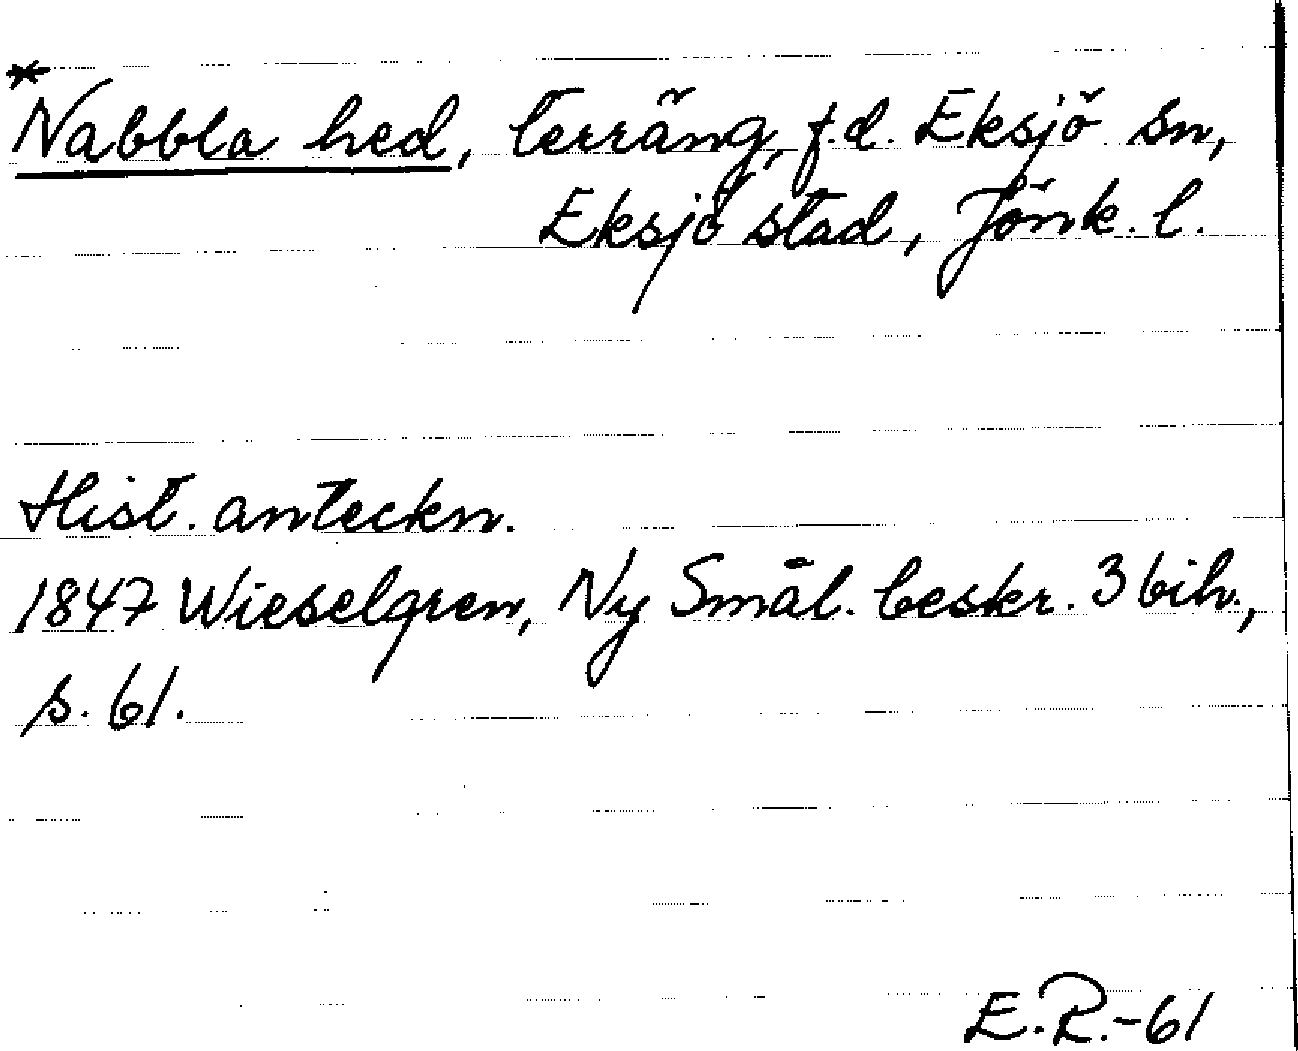 *Nabbla hed, terräng, f.d. Eksjö sn,
Eksjö stad, Jönk. l.
Hist. anteckn.
1847 Wieselgren, Ny Smål. beskr. 3 bih.,
s. 61.
E.R.-61